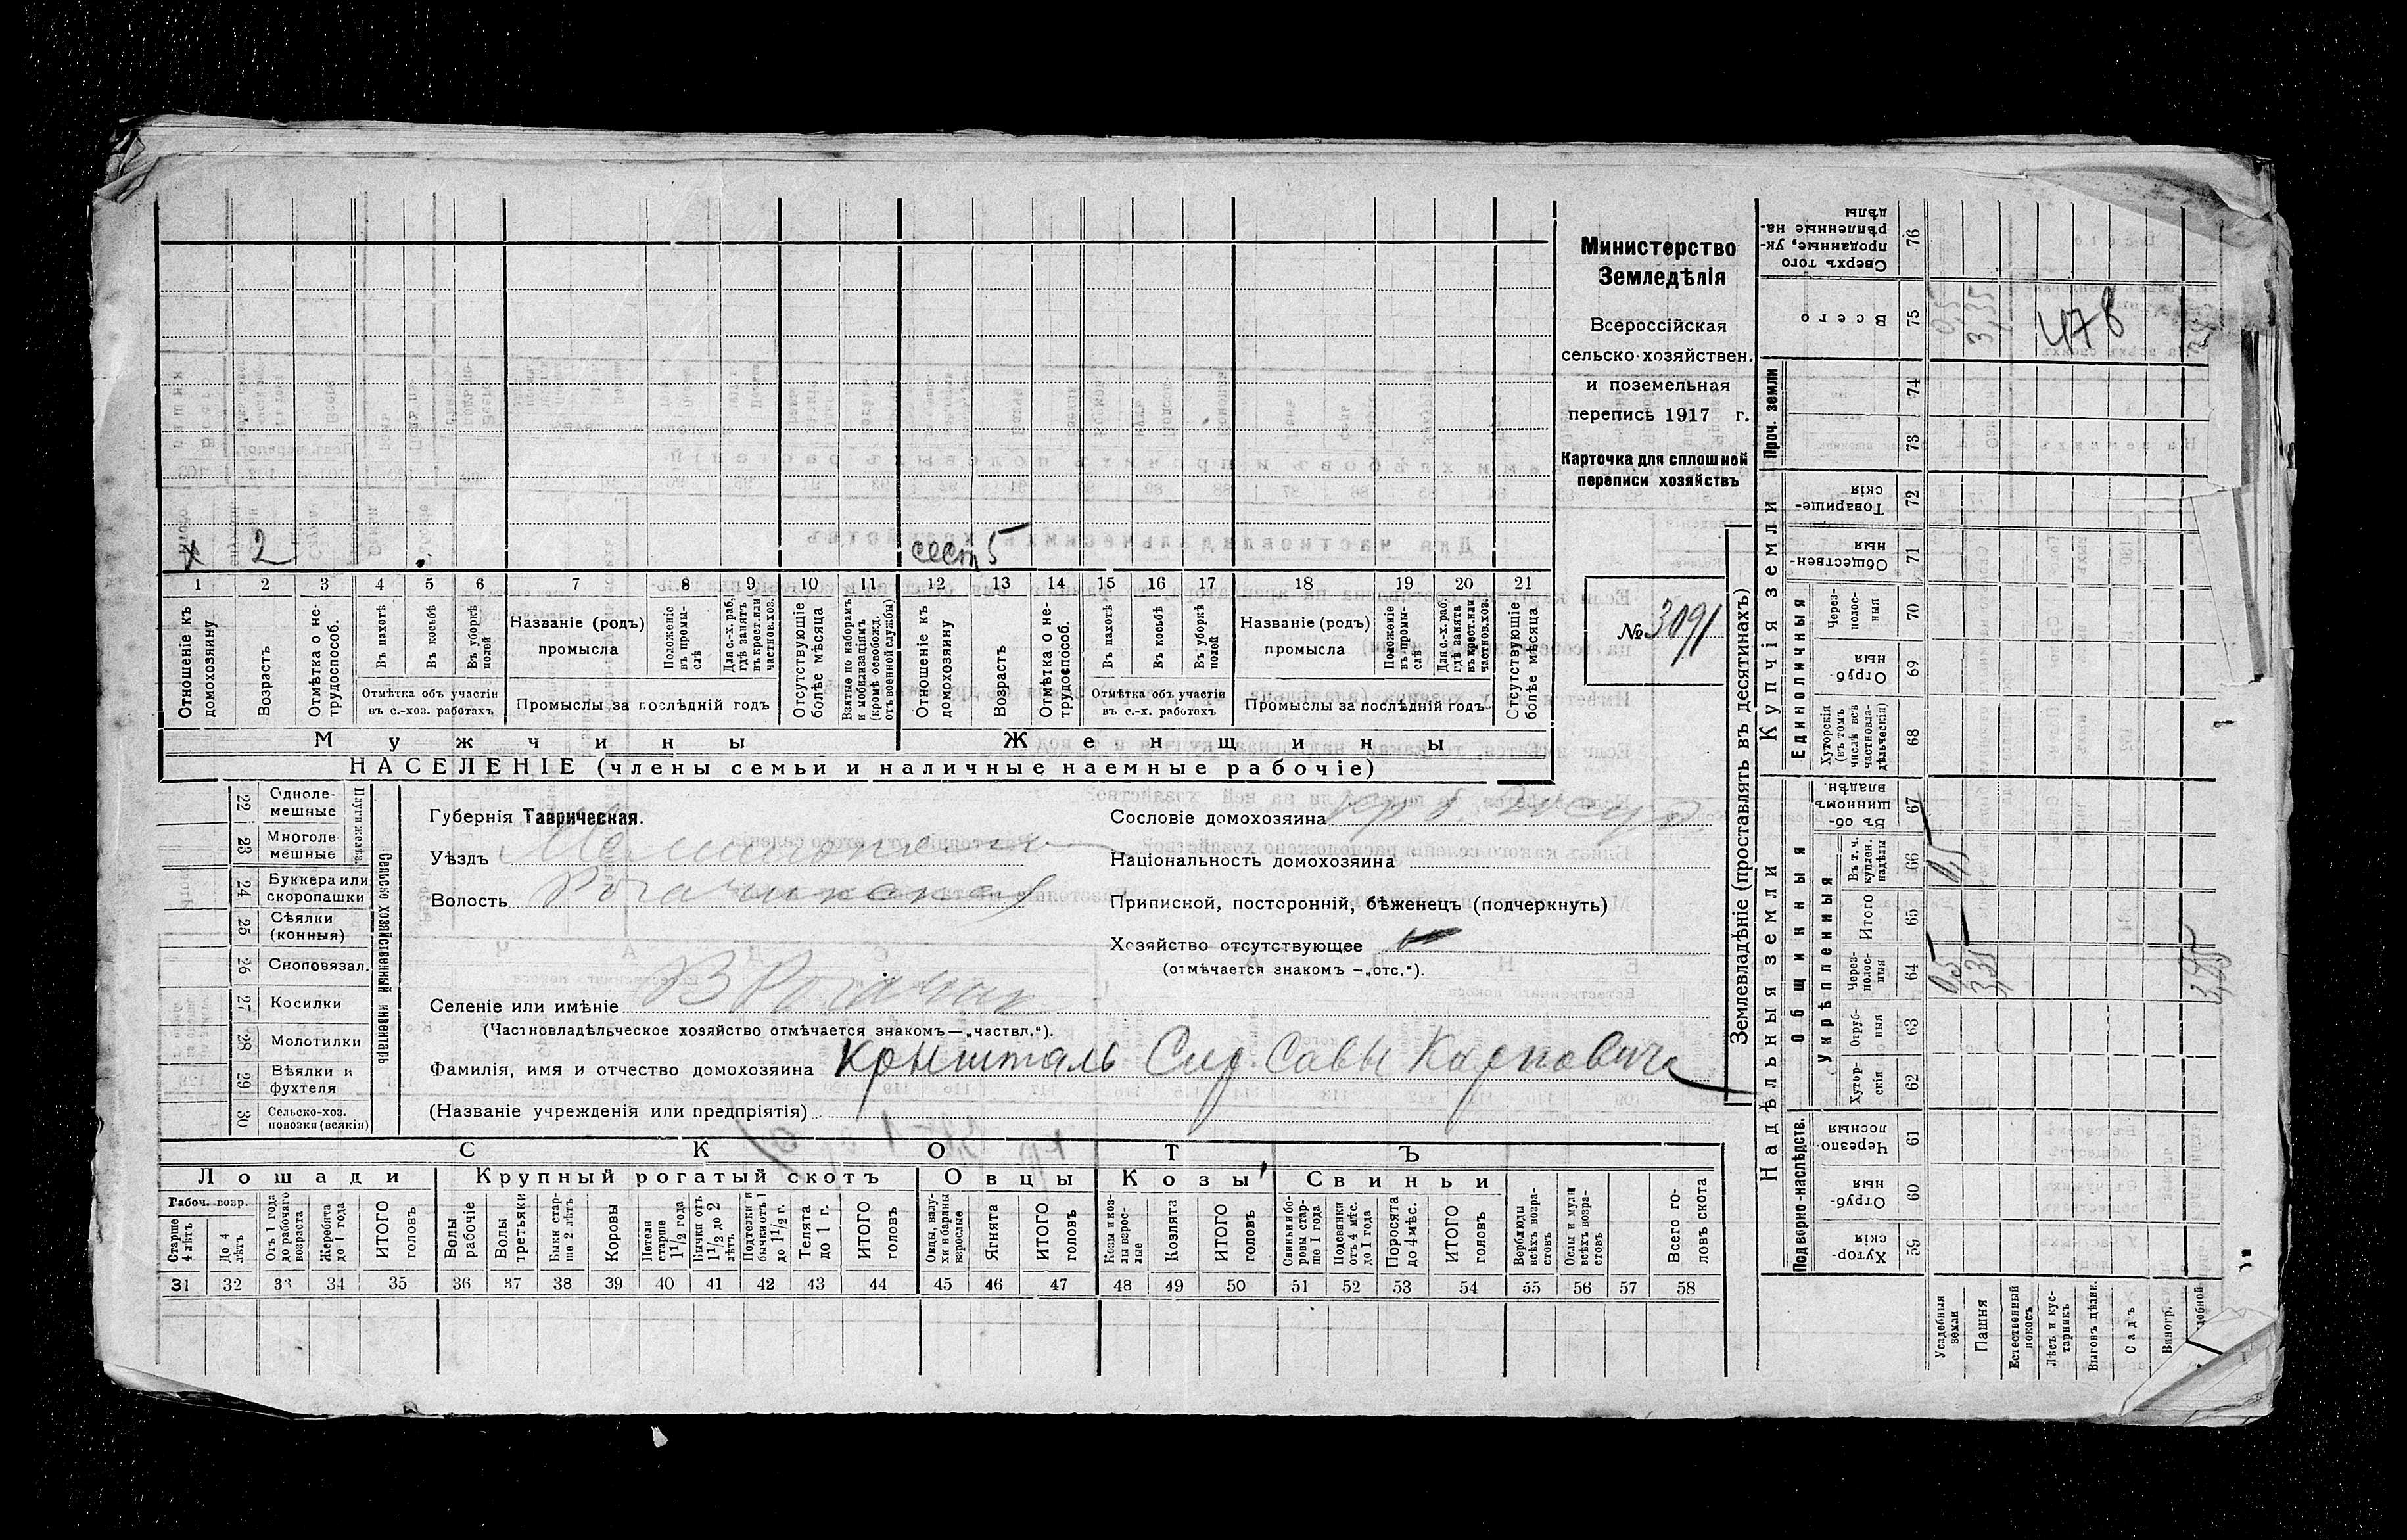 Министерство
Земледѣлія
Всероссійская
сельско-хозяйствен.
и поземельная
перепись 1917 г.
Карточка для сплошной
переписи хозяйствъ
№ 3091
х 2 сест 5
1 2 3 4 5 6 7 8 9 10 11 12 13 14 15 16 17 18 19 20 21
Отношеніе къ домохозяину
Возрастъ
Отмѣтка о нетрудоспособ.
Въ пахотѣ
Въ косьбѣ
Въ уборкѣ полей
Отмѣтка объ участіи
въ с.-хоз. работахъ
Названіе (родъ)
промысла
Положеніе въ промыслѣ
Для с.-х. раб., гдѣ занятъ въ крест. или частнов. хоз.
Промыслы за послѣдній годъ
Отсутствующіе болѣе мѣсяца
Взятые по наборамъ и мобилизаціямъ (кромѣ освобожд. отъ военной службы)
Отношеніе къ домохозяину
Возрастъ
Отмѣтка о нетрудоспособ.
Въ пахотѣ
Въ косьбѣ
Въ уборкѣ полей
Отмѣтка объ участіи
въ с.-х. работахъ
Названіе (родъ)
промысла
Положеніе въ промыслѣ
Для с.-х. раб. гдѣ занята въ крест. или частнов. хоз.
Промыслы за послѣдній годъ
Отсутствующіе болѣе мѣсяца
Мужчины Женщины
НАСЕЛЕНІЕ (члены семьи и наличные наемные рабочіе)
Сельско хозяйственный инвентарь
Плуги желѣзн.
22 Одноле-
мешные
23 Многоле
мешные
24 Буккера или
скоропашки
25 Сѣялки
(конныя)
26 Сноповязал.
27 Косилки
28 Молотилки
29 Вѣялки и
фухтеля
30 Сельско-хоз.
повозки (всякія)
Губернія Таврическая.
Уѣздъ Мелитопол
Волость Рогачикская
Селеніе или имѣніе В Рогачик
(Частновладѣльческое хозяйство отмѣчается знакомъ—„частвл.“).
Фамилія, имя и отчество домохозяина Крышталь Сир. Савы Карповича
(Названіе учрежденія или предпріятія)
Сословіе домохозяина кр б. госуд.
Національность домохозяина
Приписной, посторонній, бѣженецъ (подчеркнуть)
Хозяйство отсутствующее
(отмѣчается знакомъ —„отс.“).
СКОТЪ
Лошади Крупный рогатый скотъ Овцы Козы Свиньи
Рабоч. возр.
Старше 4 лѣтъ
До 4 лѣтъ
Отъ 1 года до рабочаго возраста
Жеребята до 1 года
ИТОГО головъ
Волы рабочіе
Волы третьяки
Быки старше 2 лѣтъ
Коровы
Нетели старше 1 1/2 года
Бычки отъ 1 1/2 до 2 лѣтъ
Подтелки и бычки отъ 1 до 1 1/2 г.
Телята до 1 г.
ИТОГО головъ
Овцы, валухи и бараны взрослые
Ягнята
ИТОГО головъ
Козы и козлы взрослые
Козлята
ИТОГО головъ
Свиньи и боровы старше 1 года
Подсвинки отъ 4 мѣс. до 1 года
Поросята до 4 мѣс.
ИТОГО головъ
Верблюды всѣхъ возрастовъ
Ослы и мулы всѣхъ возрастовъ
Всего головъ скота
31 32 33 34 35 36 37 38 39 40 41 42 43 44 45 46 47 48 49 50 51 52 53 54 55 56 57 58
Землевладѣніе (проставлять въ десятинахъ)
Надѣльныя земли
Купчія земли
Проч. земли
Подворно-наслѣдств.
Общинныя
Укрѣпленныя
Единоличныя
Сверхъ того проданные, укрѣпленные надѣлы 76
Всего 75 0,5 3,35
478
74
73
Товарищескія 72
Общественныя 71
Черезполосныя 70
Отрубныя 69
Хуторскія (въ томъ числѣ всѣ частновладѣльческія) 68
Въ общинномъ владѣн. 67
Въ т. ч. куплен. надѣлы 66 0,5
Итого 65
Черезполосныя 64 0,5 3,35
Отрубныя 63
Хуторскія 62
Черезполосныя 61
Отрубныя 60
Хуторскія 59
Усадебныя земли
Пашня
Естественный покосъ
Лѣсъ и кустарникъ
Выгонъ дѣлин.
Садъ
Виногр.